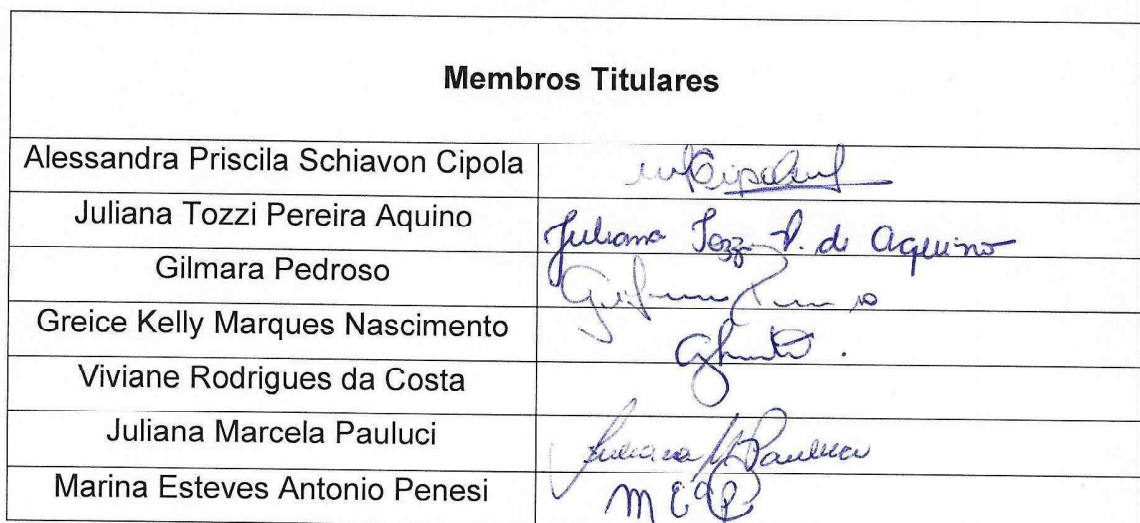 Membros Titulares
Alessandra Priscila Schiavon Cipola
Juliana Tozzi Pereira Aquino Juliana Tozzi P. de Aquino
Gilmara Pedroso
Greice Kelly Marques Nascimento
Viviane Rodrigues da Costa
Juliana Marcela Pauluci Juliana M Pauluci
Marina Esteves Antonio Penesi